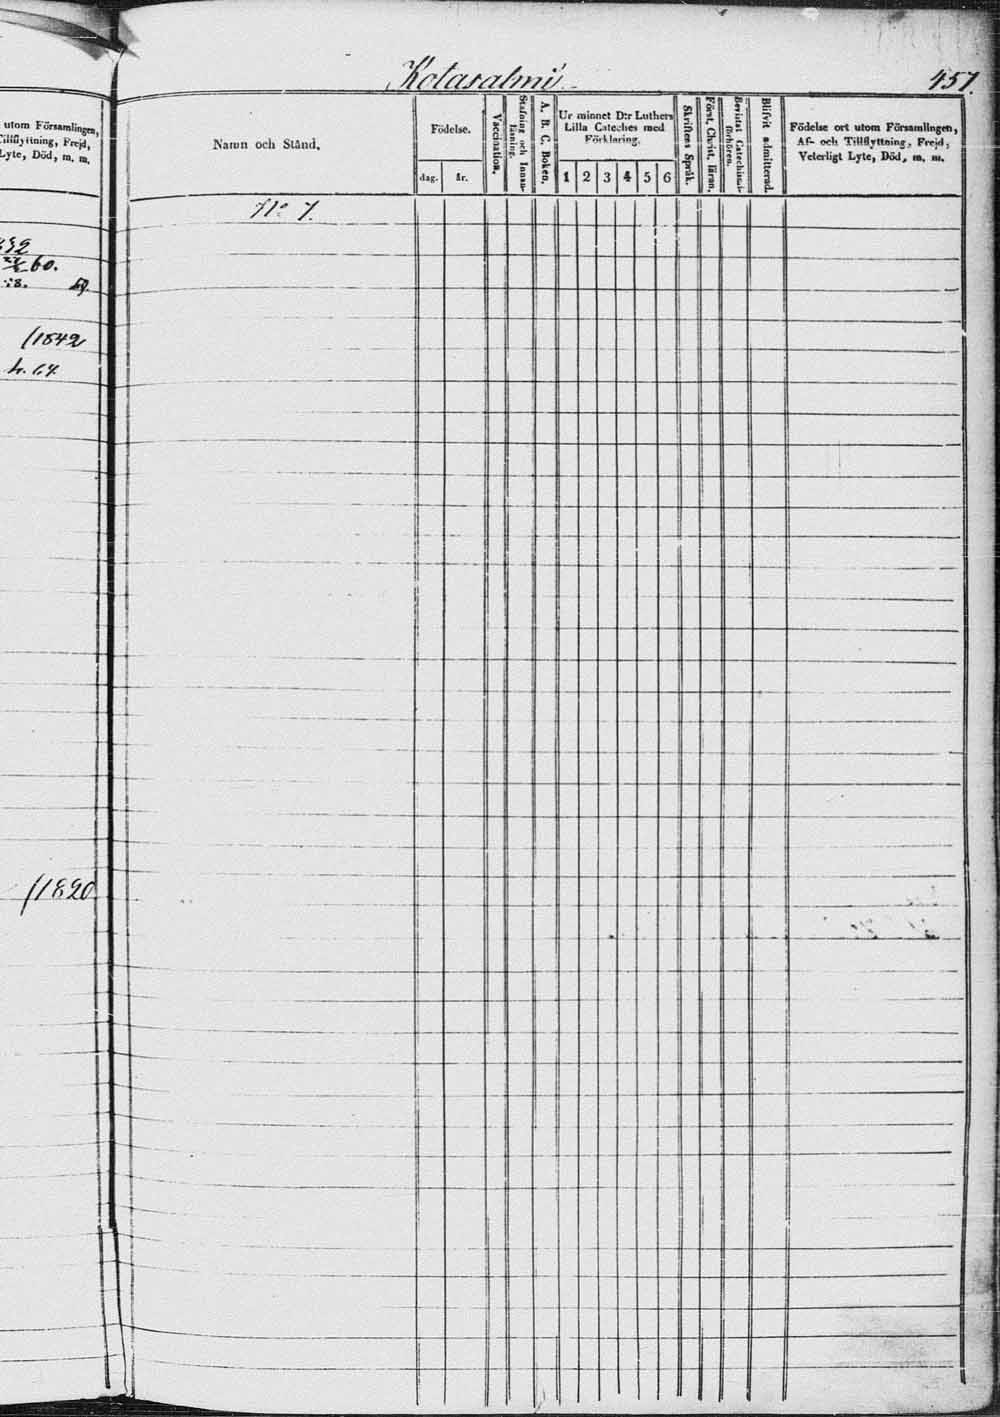 Kotasalmi
457.
utom Församlingen,
Tillflyttning, Frejd,
Lyte, Död, m. m.
60.
/1842
/1820
Namn och Stånd.
Födelse.
dag.
år.
Vaccination.
Stafning och Innan-
läsning.
A. B. C. Boken.
Ur minnet D:r Luthers
Lilla Cateches med
Förklaring.
1 2 3 4 5 6
Skriftens Språk.
Först. Christ. läran.
Bevistat Catechismi-
förhören.
Blifvit admitterad.
Födelse ort utom Församlingen,
Af- och Tillflyttning, Frejd,
Veterligt Lyte, Död, m. m.
No 7.